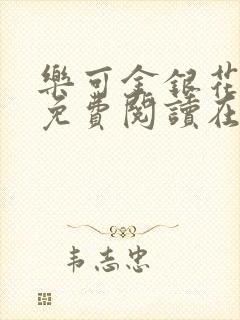 樂可金銀花
免費閱讀在
韦志忠